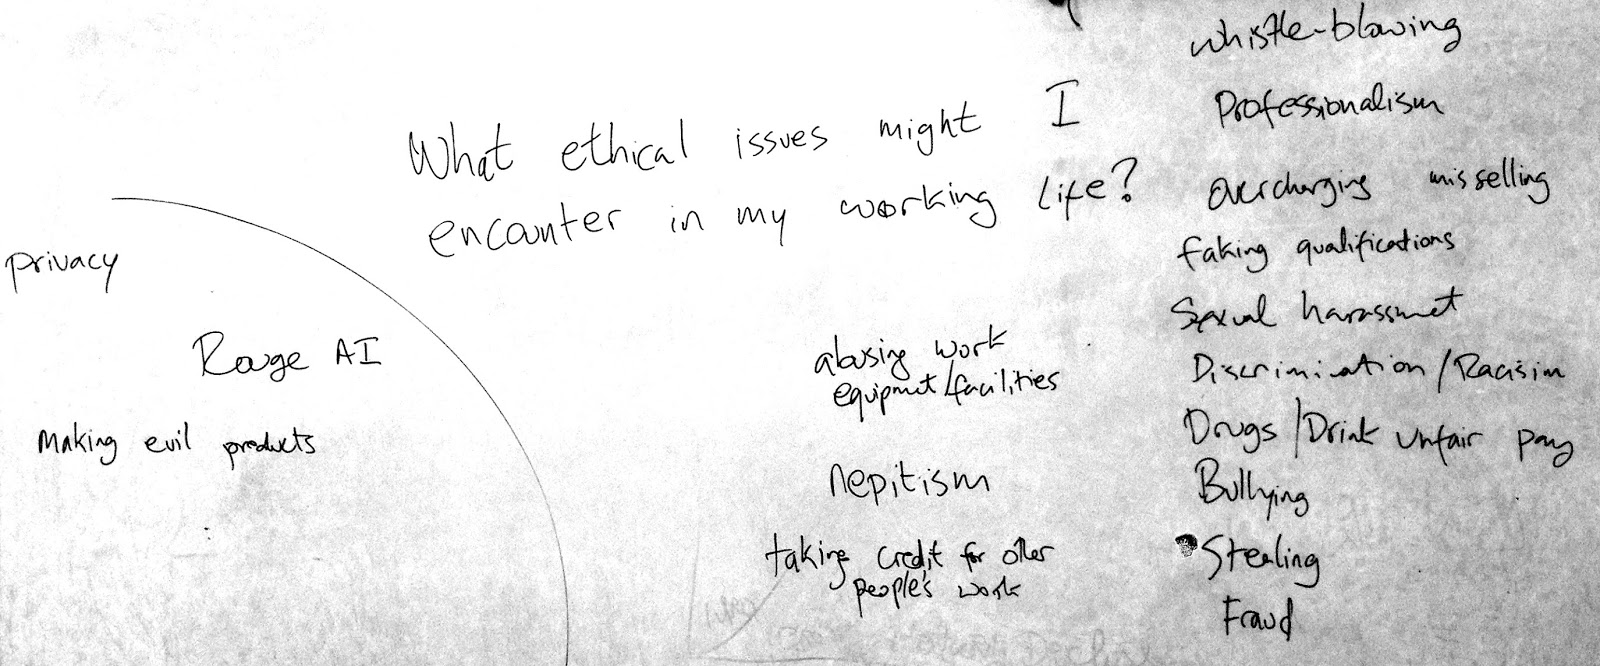 What ethical issues might I
encounter in my working life?
privacy
Rouge AI
Making evil products
abusing work
equipmet/facilities
nepitism
taking credit for other
people's work
whistle-blowing
Professionalism
overcharging misselling
faking qualifications
Sexual harassmet
Discrimination/Racisim
Drugs/Drink unfair pay
Bullying
Stealing
Fraud